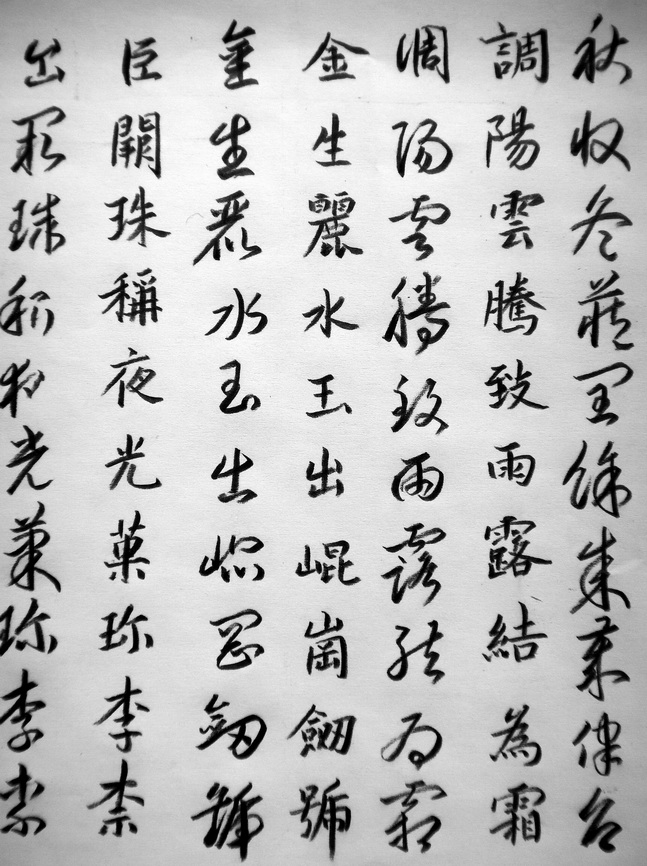 秋收冬藏閏餘成歲律呂
調陽雲騰致雨露結為霜
調陽雲騰致雨露結為霜
金生麗水玉出崐崗劒號
金生麗水玉出崐岡劒號
巨闕珠稱夜光菓珍李柰
巨闕珠稱夜光菓珍李柰